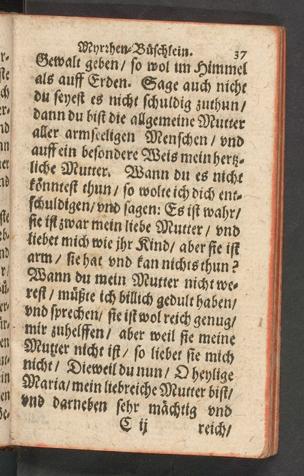 Myrrhen-Büschlein. 37
Gewalt geben / so wol im Himmel
als auff Erden. Sage auch nicht
du seyest es nicht schuldig zuthun /
dann du bist die allgemeine Mutter
aller armseeligen Menschen / und
auff ein besondere Weis mein hertz-
liche Mutter. Wann du es nicht
könntest thun / so wolte ich dich ent-
schuldigen / und sagen: Es ist wahr /
sie ist zwar mein liebe Mutter / und
liebet mich wie ihr Kind / aber sie ist
arm / sie hat und kan nichts thun?
Wann du mein Mutter nicht we-
rest / müßte ich billich gedult haben /
und sprechen / sie ist wol reich genug /
mir zuhelffen / aber weil sie meine
Mutter nicht ist / so liebet sie mich
nicht / Dieweil du nun / O heylige
Maria / mein liebreiche Mutter bist /
und darneben sehr mächtig und
C ij reich /